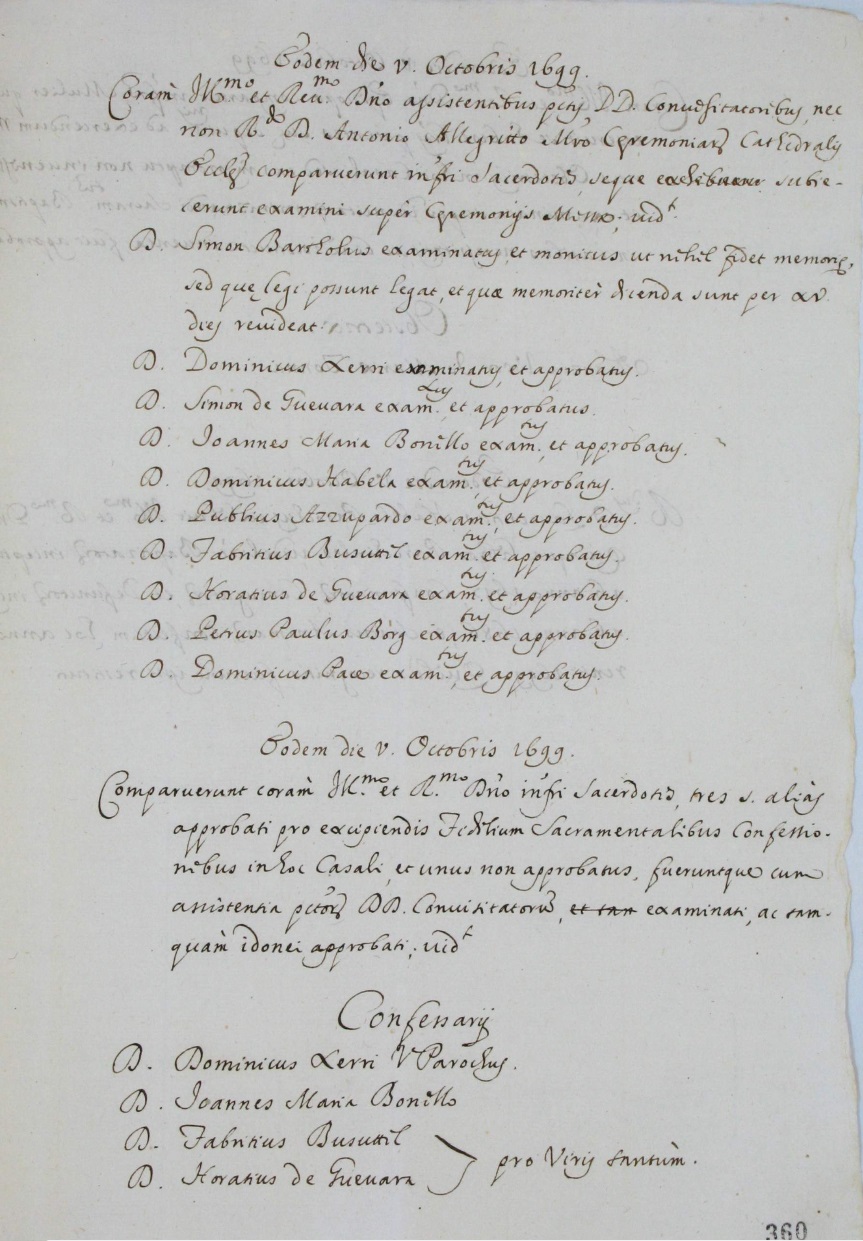 Eodem die v. Octobris 1699.
Coram Ill.mo et Reu.mo Dño assistentibus pctis DD. Convisitatoribus, nec
non R.do D. Antonio Allegritto Mro Cęremoniarz Cathedralis
Ecclę comparuerunt infri Sacerdotes, seque exhibuerunt subie-
cerunt examini supèr Cęremonijs Missæ, uidt.
D. Simon Bartholus examinatus, et monitus ut nihil fidet memorię,
sed quę legi possunt legat, et quæ memoritèr dicenda sunt per xv
dies reuideat.
D. Dominicus Xerri examinatus, et approbatus.
D. Simon de Gueuara exam.tus, et approbatus.
D. Joannes Maria Bonillo exam.tus, et approbatus.
D. Dominicus Habela exam.tus, et approbatus.
D. Publius Azzupardo exam.tus, et approbatus.
D. Fabritius Busuttil exam.tus et approbatus.
D. Horatius de Gueuara exam.tus et approbatus.
D. Petrus Paulus Borg exam.tus et approbatus.
D. Dominicus Pace exam.tus, et approbatus.
Eodem die v. Octobris 1699.
Comparuerunt coràm Ill.mo et R.mo Dño infri Sacerdotes, tres s. aliàs
approbati pro excipiendis Fidelium Sacramentalibus Confessio-
nibus in hoc Casali, et unus non approbatus, fueruntque cum
assistentia pctorz DD. Conuisitatorũ, et tan examinati, ac tam-
quàm idonei approbati; uidt
Confessarij
D. Dominicus Xerri V Parochus.
D. Joannes Maria Bonillo
D. Fabritius Busuttil
D. Horatius de Gueuara } pro Viris tantùm.
360